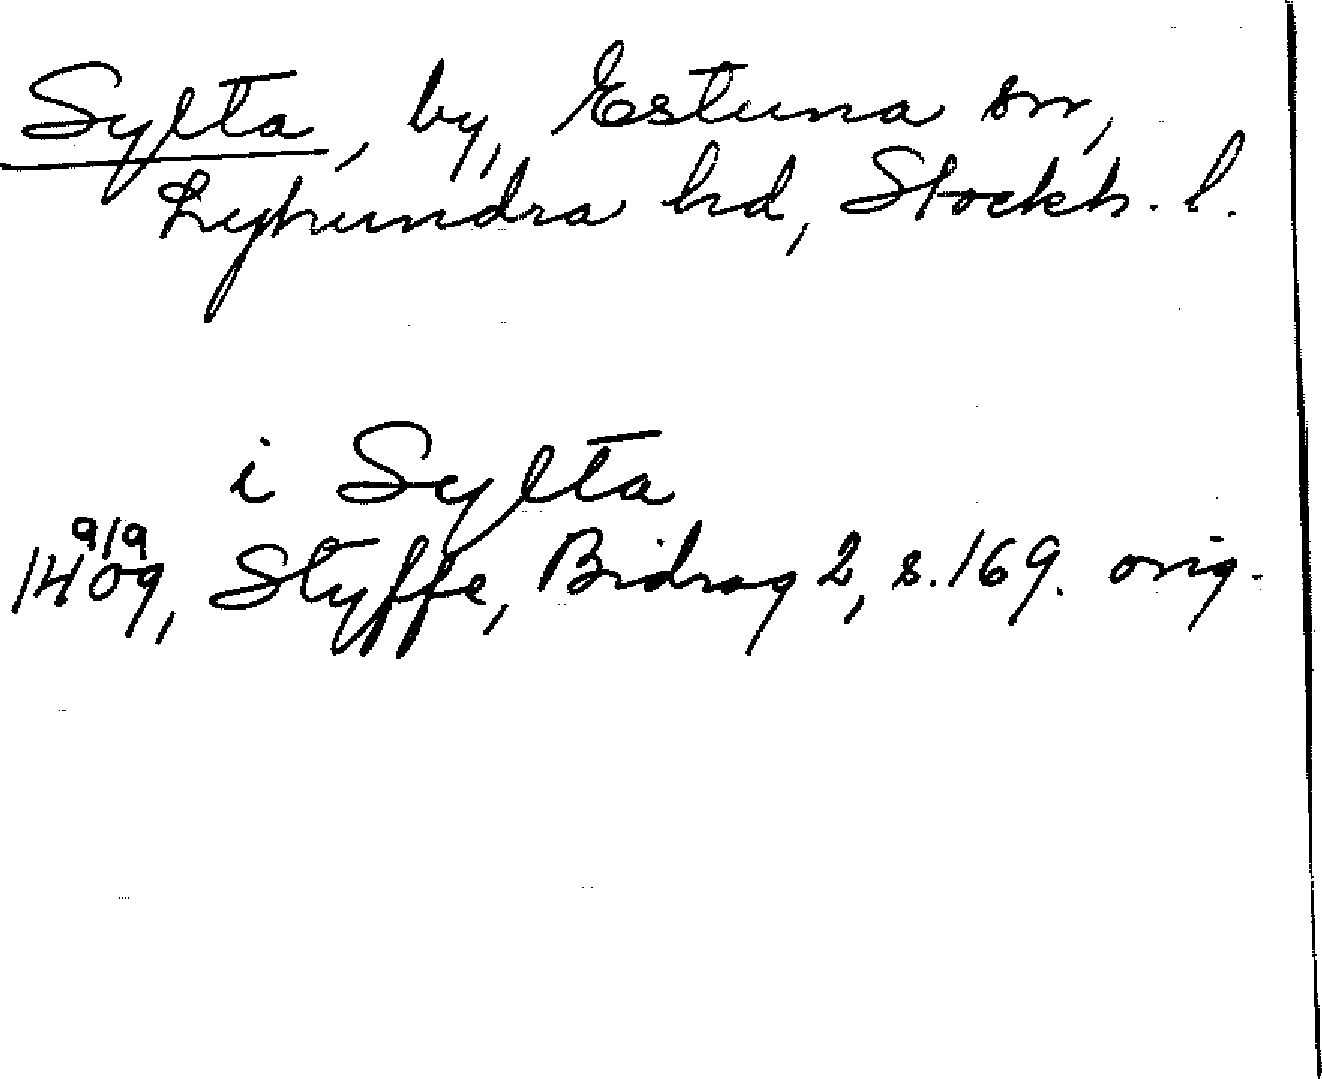 Sylta, by, Estuna sn,
Lyhundra hd, Stockh. l.
i Sylta
9/9
1409, Styffe, Bidrag 2, s. 169. orig.